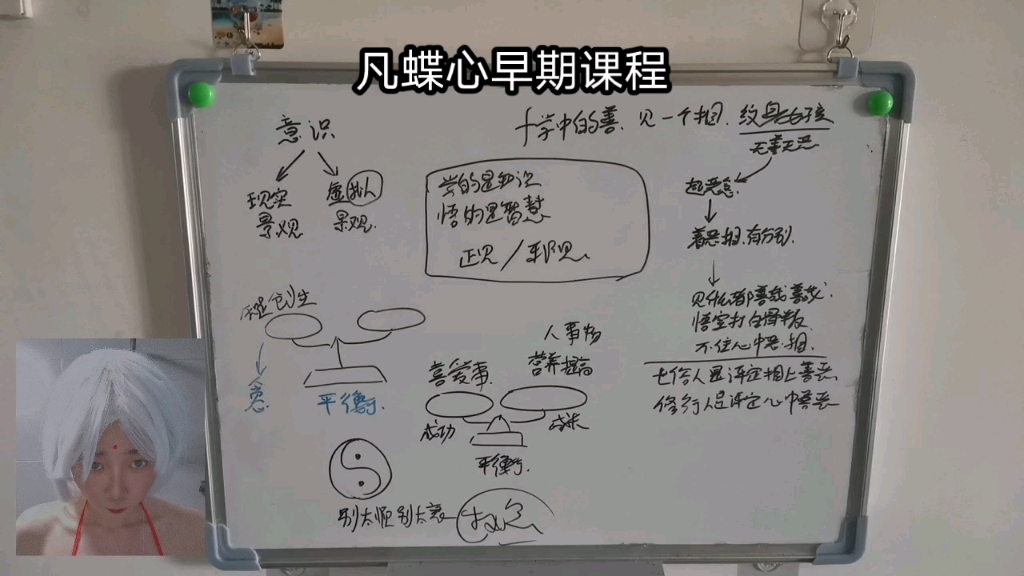 凡蝶心早期课程
意识
现实
景观
虚拟人
景观
学中的善. 见一个相. 纹身的孩
无善无恶
起恶念
着恶相.有分别.
见什么都善哉善哉.
悟空打白骨精
不住心中恶相.
七俗人是评定相上善恶
修行人是评定心中善恶
学的是知识
悟的是智慧
正见/邪见
念
平衡
喜爱事
人事物
营养提高
成功
平衡.
别太